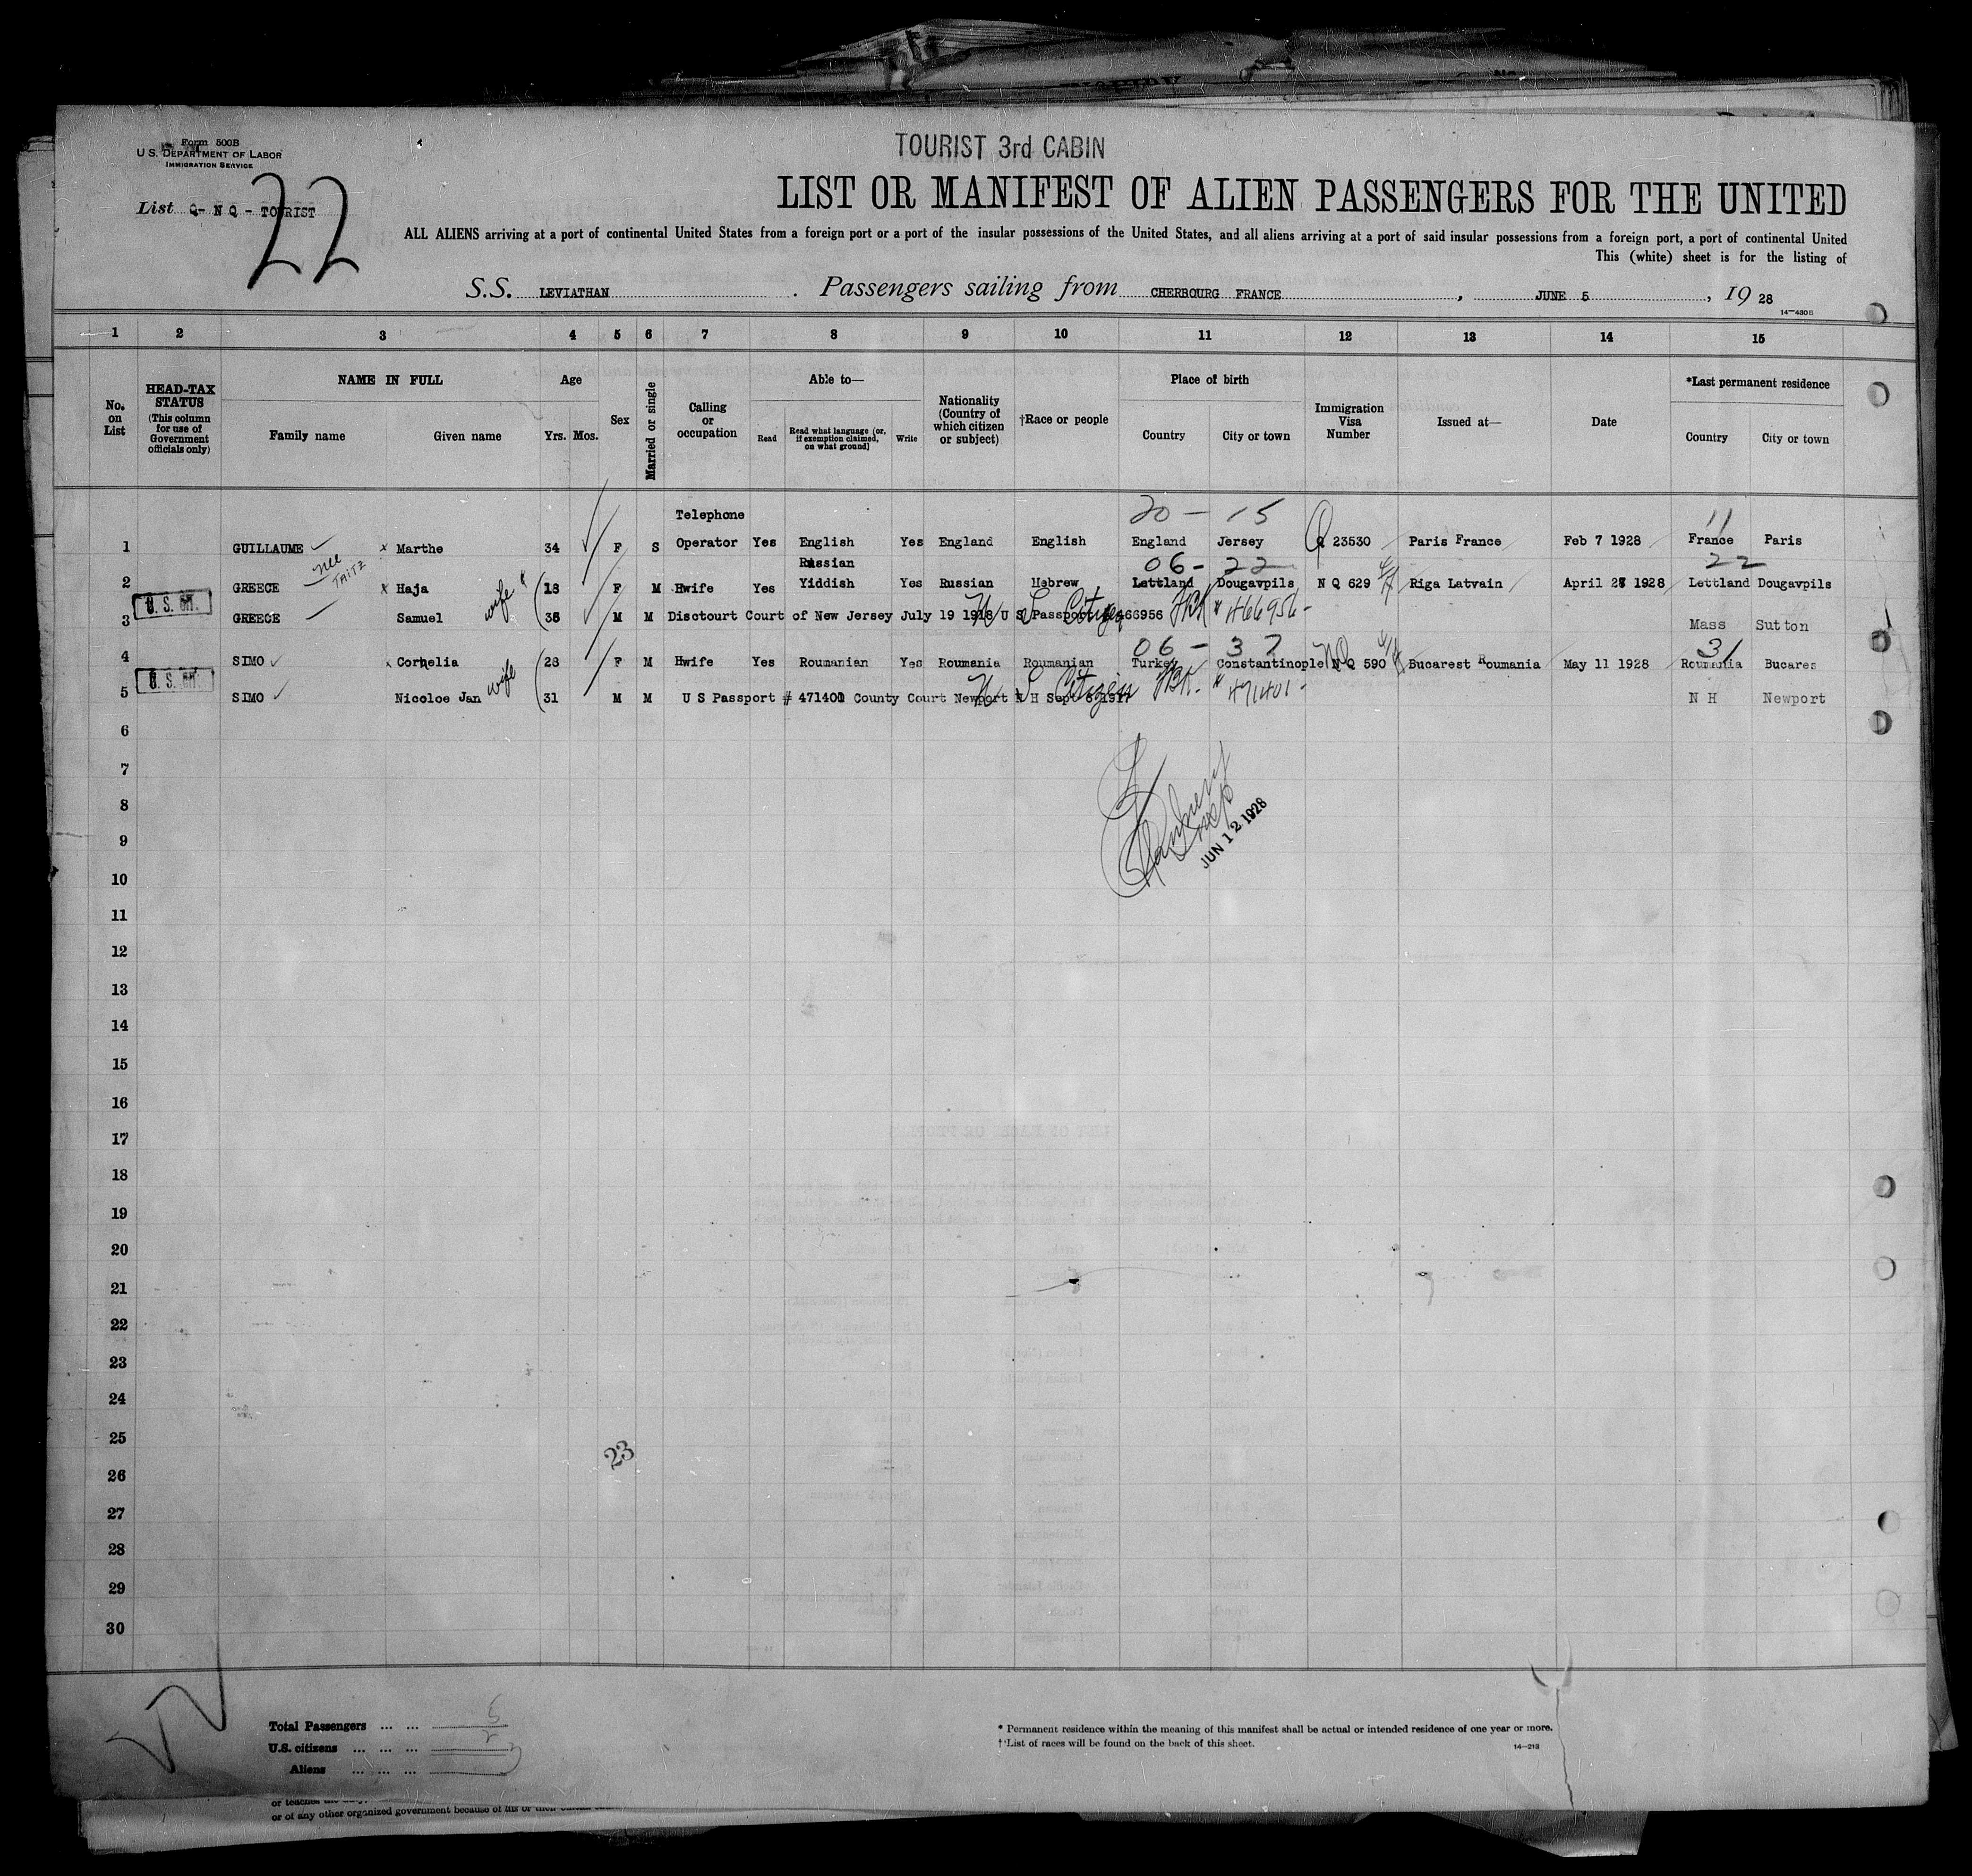 Form 500B
U.S. DEPARTMENT OF LABOR
IMMIGRATION SERVICE
TOURIST 3rd CABIN
LIST OR MANIFEST OF ALIEN PASSENGERS FOR THE UNITED
List Q- N Q - TOURIST
22
ALL ALIENS arriving at a port of continental United States from a foreign port or a port of the insular possessions of the United States, and all aliens arriving at a port of said insular possessions from a foreign port, a port of continental United
This (white) sheet is for the listing of
S.S. LEVIATHAN . Passengers sailing from CHERBOURG FRANCE , JUNE 5 , 19 28
14—430B
1 2 3 4 5 6 7 8 9 10 11 12 13 14 15
No. on List
HEAD-TAX STATUS (This column for use of Government officials only)
NAME IN FULL
Family name Given name
Age
Yrs. Mos.
Sex
Married or single
Calling or occupation
Able to—
Read Read what language (or, if exemption claimed, on what ground) Write
Nationality (Country of which citizen or subject)
†Race or people
Place of birth
Country City or town
Immigration Visa Number
Issued at—
Date
*Last permanent residence
Country City or town
Telephone 20 - 15 11
1 GUILLAUME x Marthe 34 F S Operator Yes English Yes England English England Jersey Q 23530 Paris France Feb 7 1928 France Paris
nee TAITZ Russian 06 - 22 22
2 GREECE x Haja wife (18 F M Hwife Yes Yiddish Yes Russian Hebrew Lettland Dougavpils N Q 629 Riga Latvain April 27 1928 Lettland Dougavpils
3 GREECE Samuel (38 M M Disctourt Court of New Jersey July 19 1918 U S Passport 466956 U S Citizen # 466956 - Mass Sutton
06 - 37 NQ 31
4 SIMO x Cornelia wife (28 F M Hwife Yes Roumanian Yes Roumania Roumanian Turkey Constantinople N Q 590 Bucarest Roumania May 11 1928 Roumania Bucares
5 SIMO Nicoloe Jan (31 M M U S Passport # 471401 County Court Newport N H Sept 6 1917 U S Citizen # 471401 - N H Newport
6
7
8
9
JUN 12 1928
10
11
12
13
14
15
16
17
18
19
20
21
22
23
24
25
23
26
27
28
29
30
Total Passengers ... ... 5
U.S. citizens ... ... ... 2
Aliens ... ... ...
* Permanent residence within the meaning of this manifest shall be actual or intended residence of one year or more.
† List of races will be found on the back of this sheet.
14—213
or of any other organized government because of his or their